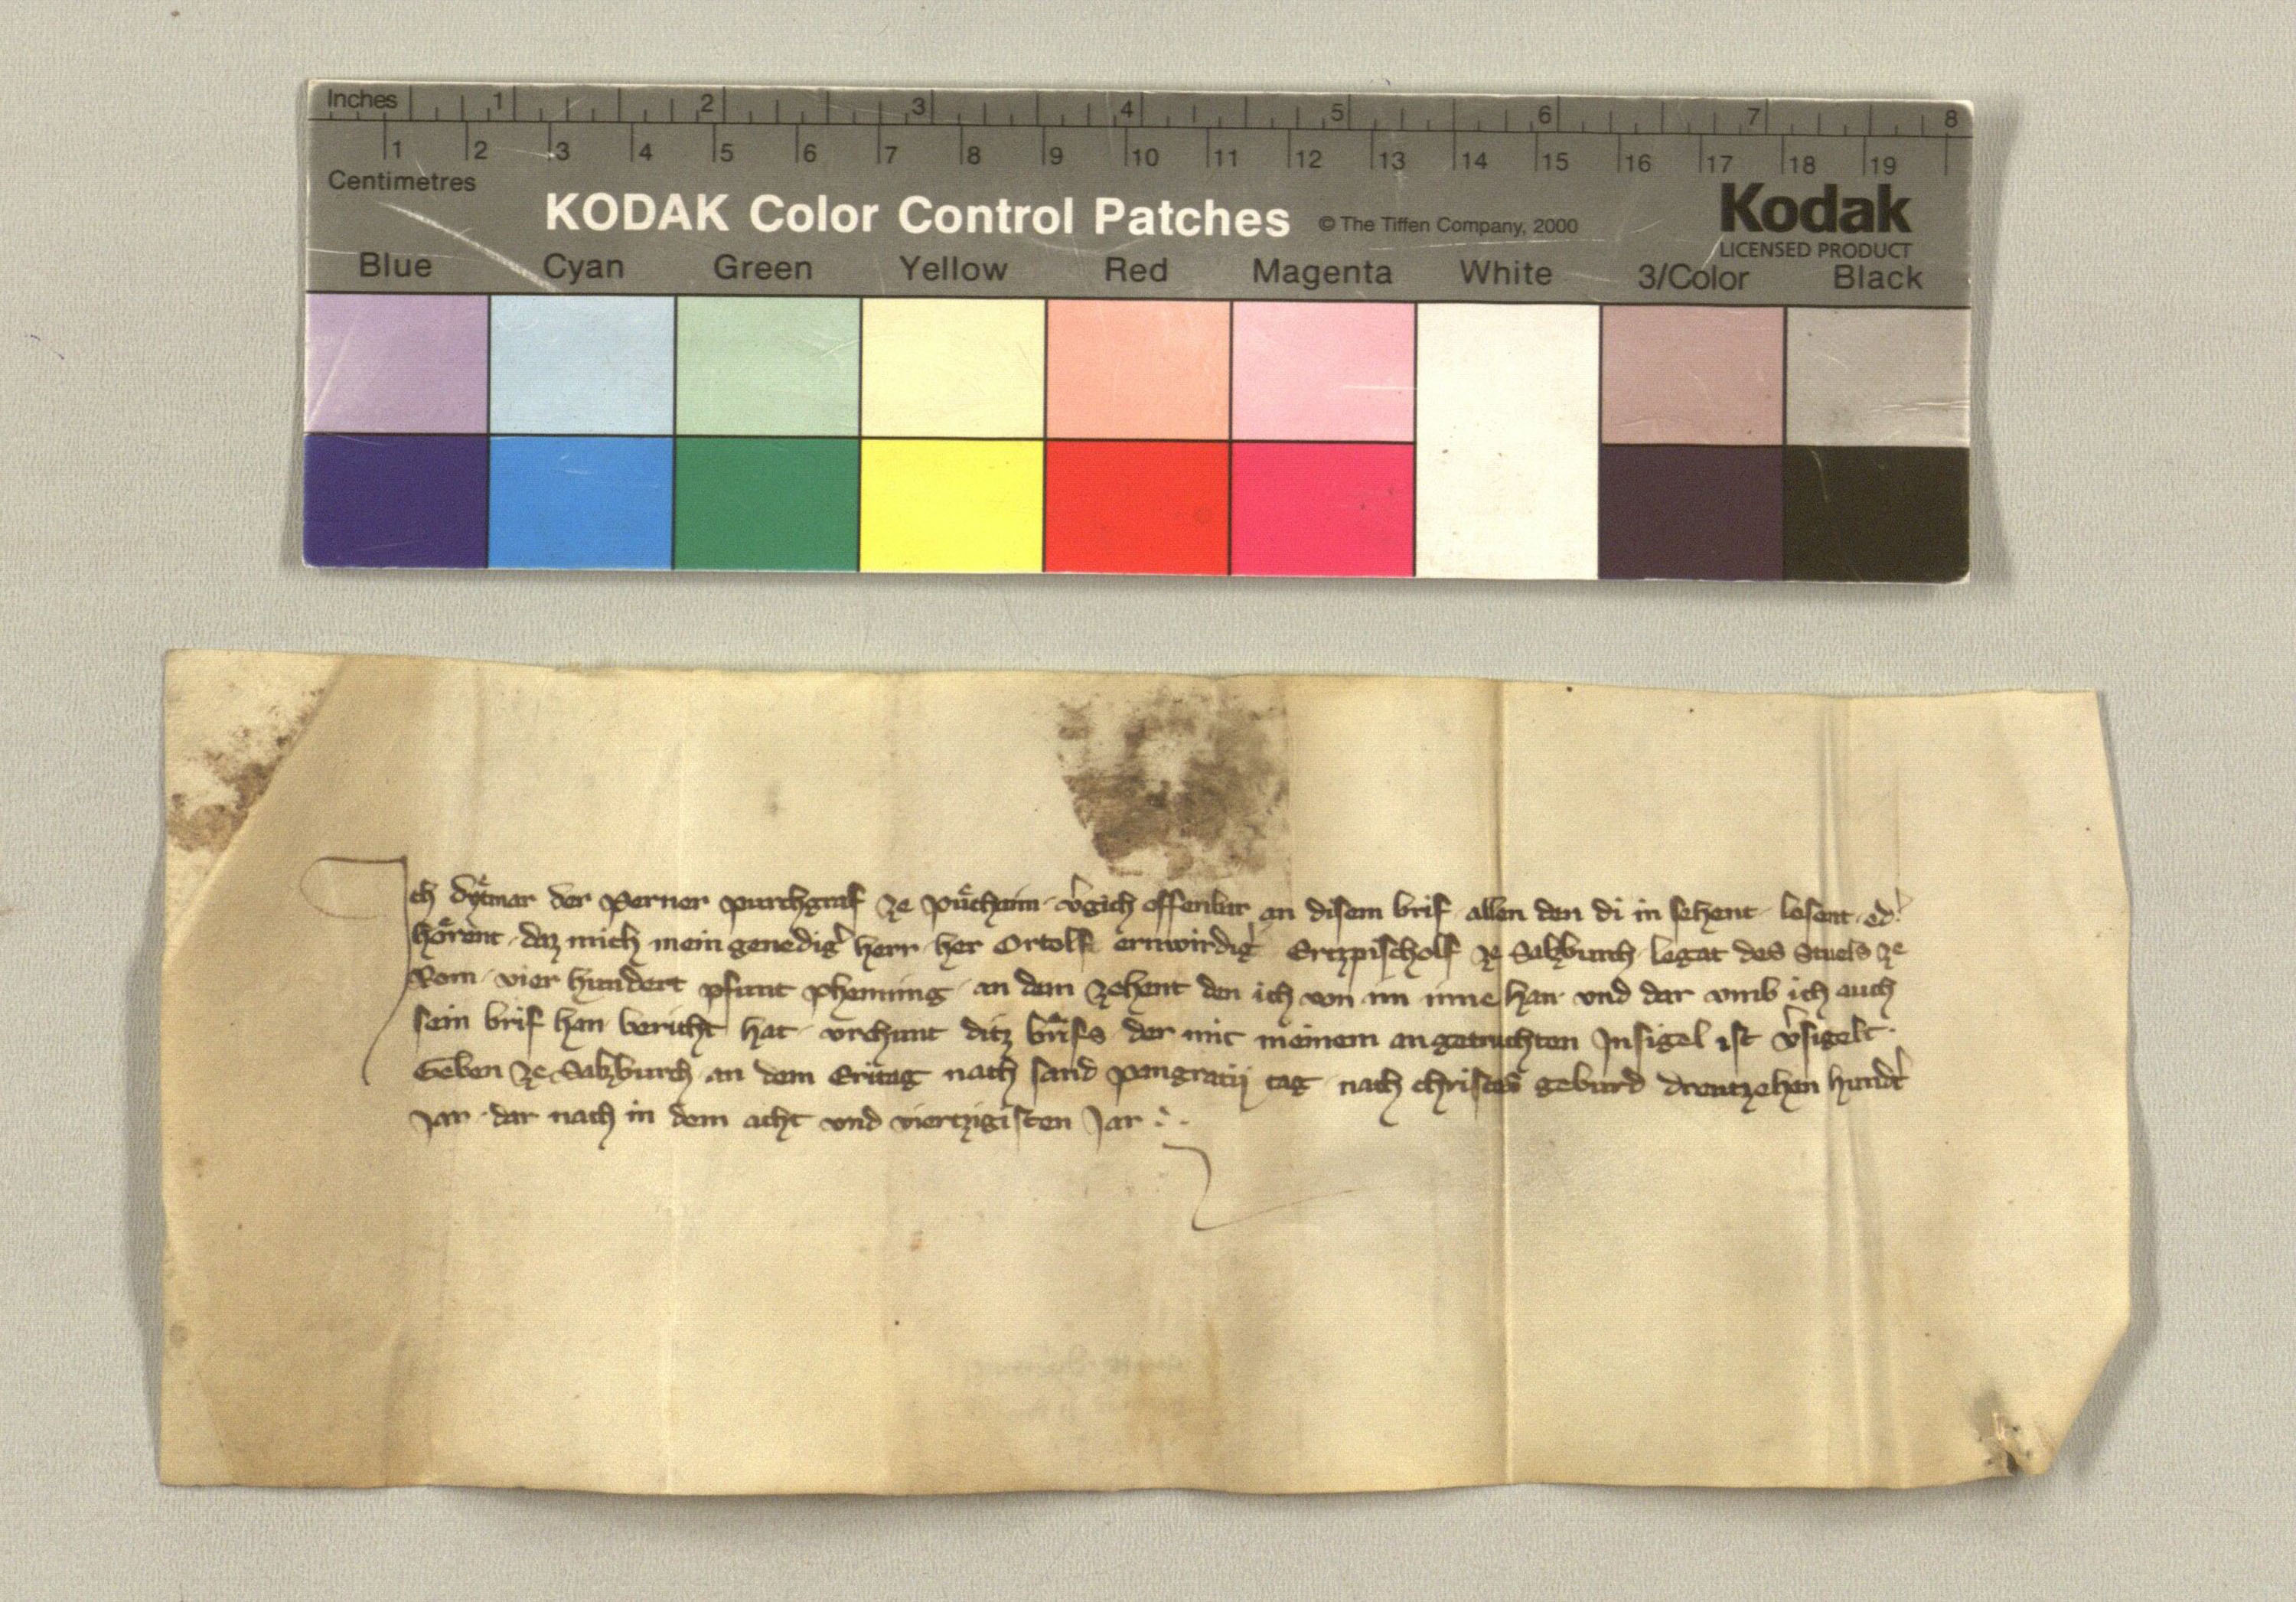 Inches 1 2 3 4 5 6 7 8
1 2 3 4 5 6 7 8 9 10 11 12 13 14 15 16 17 18 19
Centimetres
KODAK Color Control Patches © The Tiffen Company, 2000 Kodak
LICENSED PRODUCT
Blue Cyan Green Yellow Red Magenta White 3/Color Black
Ich Dyͤtmar der Perner purchgraf ze Puͤchaim v̾gich offenbar an disem brif allen den di in sehent lesent od̾
hoͤrent daz mich mein genedig̾ herr her Ortolf erwirdig̾ Ertzpischolf ze Salzburch legat des Stuels ze
Rom vier hundert pfunt phenning an dem zehent den ich von im inne han vnd dar vmb ich auch
sein brif han bericht hat vrchunt ditz brifs der mit meinem angetruchten Insigel ist v̾sigelt
Geben ze Salzburch an dem Eritag nach sand pangratij tag nach christes geburd dreutzehen hund̾t
Jar dar nach in dem acht vnd viertzigisten Jar